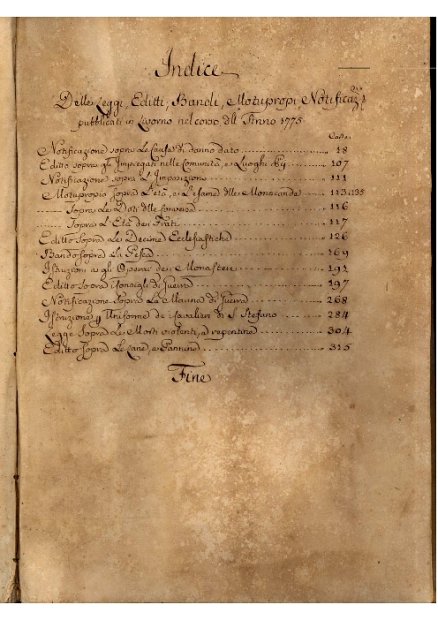 Indice
Delle Leggi, Editti, Bandi, Motupropi, Notificaz.ni
pubblicati in Livorno nel corso dell' Anno 1775
Notificazione sopra le Cause di danno dato 18
Editto sopra gl' Impiegati nelle Comunità, e Luoghi Pij 107
Notificazione sopra l' 111
Motuproprio sopra l' Età, e l' esame delle Monacande 113. 135
Sopra le Doti delle 116
Sopra l' Età dei Frati 117
Editto Sopra le Decime Ecclesiastiche 126
Bando Sopra La Pesca 169
Istruzioni a gli Operai dei Monasteri 191
Editto Sopra i Consigli di Guerra 197
Notificazione Sopra La Marina di Guerra 268
Istruzione p. l' Uniforme de' Cavalieri di S. Stefano 284
Legge Sopra Le Morti violenti, e repentine 304
Editto Sopra le Lane, e Pannine 315
Fine